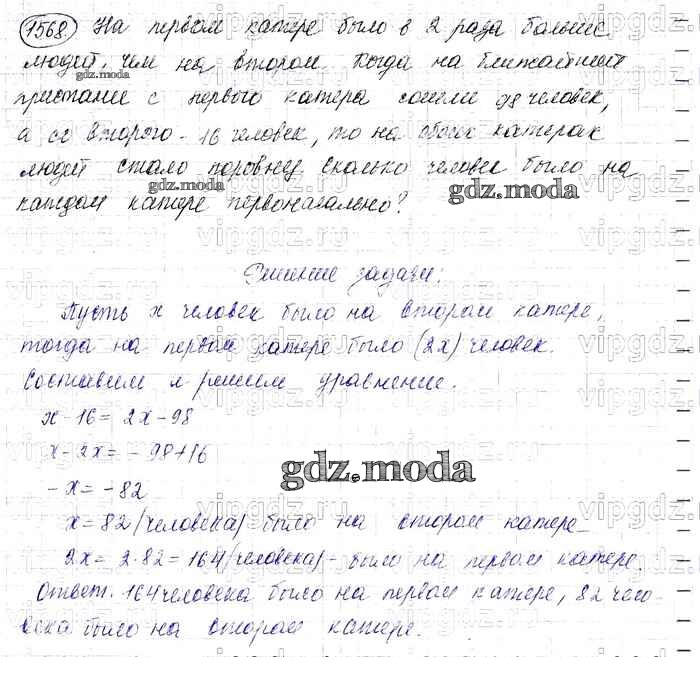 1568 На первом катере было в 2 раза больше
людей, чем на втором. Когда на ближайшей
gdz.moda
пристани с первого катера сошли 98 человек,
а со второго - 16 человек, то на обоих катерах
людей стало поровну. Сколько человек было на
gdz.moda
gdz.moda
каждом катере первоначально?
Решение задачи:
Пусть x человек было на втором катере,
тогда на первом катере было (2x) человек.
Составим и решим уравнение.
x - 16 = 2x - 98
x - 2x = - 98 + 16
gdz.moda
- x = - 82
x = 82 (человека) было на втором катере
2x = 2·82 = 164 (человека) - было на первом катере.
Ответ. 164 человека было на первом катере, 82 чело-
века было на втором катере.
vipgdz.ru